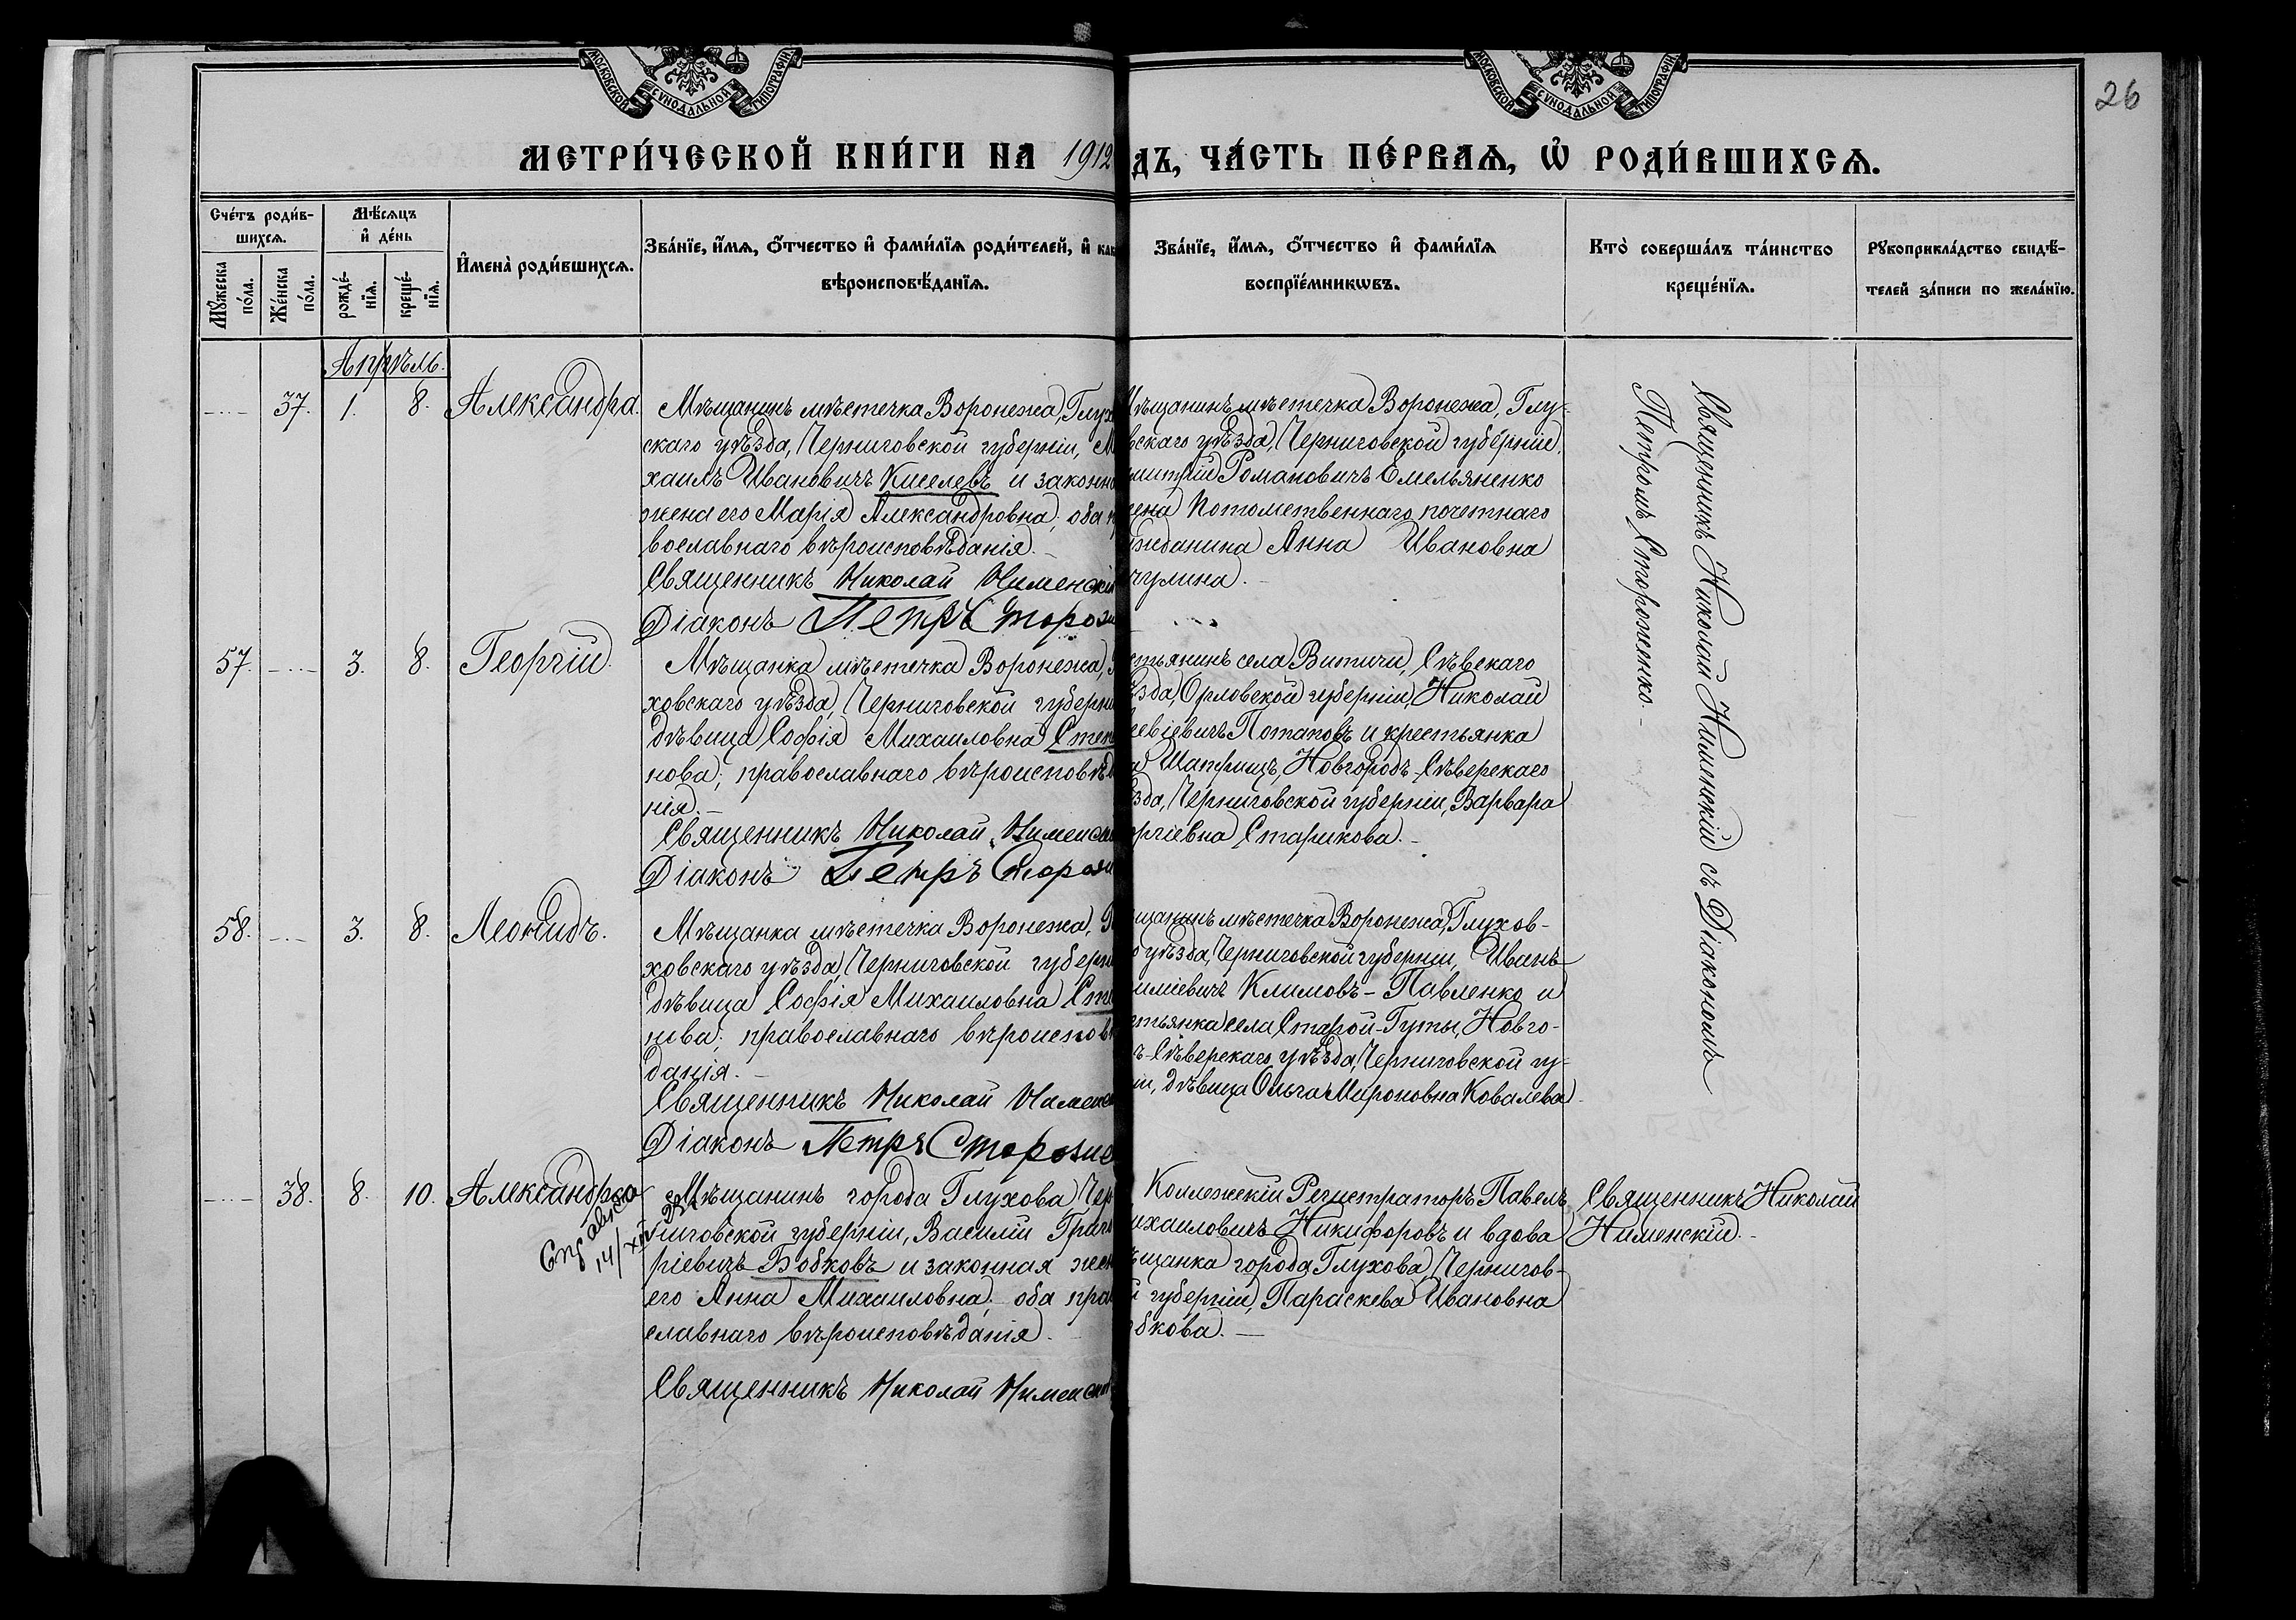 МОСКОВСКОЙ СУНОДАЛЬНОЙ ТИПОГРАФІИ
МОСКОВСКОЙ СУНОДАЛЬНОЙ ТИПОГРАФІИ
26
МЕТРИ́ЧЕСКОЙ КНИ́ГИ НА 1912
ДЪ, ЧА́СТЬ ПЕ́РВАЯ, Ѡ҆ РОДИ́ВШИХСЯ.
Счéтъ роди́в-
шихся.
Мꙋ́жеска
по́ла.
Же́нска
по́ла.
Мѣ́сяцъ
и҆ де́нь
рожде́-
нїя.
креще́-
нїя.
И҆мена̀ роди́вшихся.
Зва́нїе, и҆́мя, ѻ҆́тчество и҆ фами́лїя роди́телей, и҆ как
вѣроисповѣ́данїя.
Зва́нїе, и҆́мя, ѻ҆́тчество и҆ фами́лїя
воспрїе́мникѡвъ.
Кто̀ соверша́лъ та́инство
креще́нїя.
Рꙋкоприкла́дство свидѣ́-
телей за́писи по жела́нїю.
Апрѣль.
37. 1. 8. Александра.
Мѣщанинъ мѣстечка Воронежа, Глух
скаго уѣзда, Черниговской губерніи, М
хаилъ Ивановичъ Киселевъ и законн
жена его Марія Александровна; оба п
вославнаго вѣроисповѣданія. –
Священникъ Николай Нименскій
Діаконъ Петръ Сторож
ѣщанинъ мѣстечка Воронежа, Глу-
вскаго уѣзда, Черниговской губерніи,
митрій Романовичъ Емельяненко
ена Потомственнаго почетнаго
жданина Анна Ивановна
чулина. –
Священникъ Николай Нименскій съ Діакономъ
Петромъ Стороженко. –
57. 3. 8. Георгій.
Мѣщанка мѣстечка Воронежа,
ховскаго уѣзда, Черниговской губерн
дѣвица Софія Михаиловна Степ
нова; православнаго вѣроисповѣд
нія. –
Священникъ Николай Нименск
Діаконъ Петръ Сторож
стьянинъ села Витичи, Сѣвскаго
ѣзда, Орловской губерніи, Николай
еевіевичъ Потаповъ и крестьянка
а Шатрищъ, Новгородъ-Сѣверскаго
зда, Черниговской губерніи, Варвара
оргіевна Старикова. –
58. 3. 8. Леонидъ.
Мѣщанка мѣстечка Воронежа, Г
ховскаго уѣзда, Черниговской губерн
дѣвица Софія Михаиловна Сте
нова; православнаго вѣроисповѣ
данія. –
Священникъ Николай Нименс
Діаконъ Петръ Стороже
щанинъ мѣстечка Воронежа, Глухов-
о уѣзда, Черниговской губерніи, Иванъ
иміевичъ Климовъ-Павленко и
стьянка села Старой-Гуты, Новго-
ъ-Сѣверскаго уѣзда, Черниговской гу-
іи, дѣвица Ольга Мироновна Ковалева.
38. 8. 10. Александра
14/XII
Мѣщанинъ города Глухова, Чер
ниговской губерніи, Василій Григо
ріевичъ Бобковъ и законная жен
его Анна Михаиловна; оба пра
славнаго вѣроисповѣданія. –
Священникъ Николай Нименск
Коллежскій Регистраторъ Павелъ
ихаиловичъ Никифоровъ и вдова
ѣщанка города Глухова, Чернигов-
й губерніи, Параскева Ивановна
обкова. –
Священникъ Николай
Нименскій. –